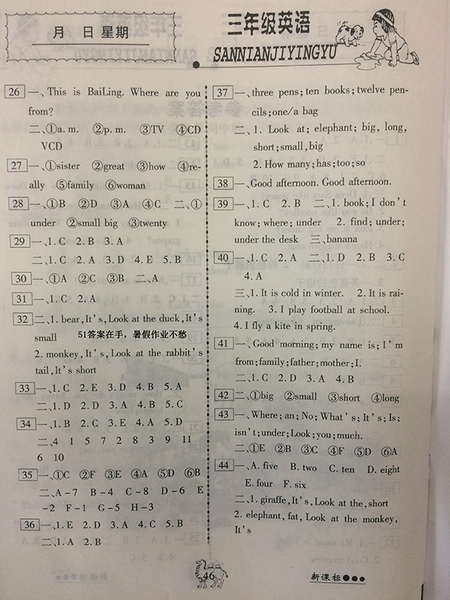 月 日 星期
三年级英语
SANNIANJIYINGYU
26 一、This is BaiLing. Where are you
from?
二、①a. m. ②p. m. ③TV ④CD
VCD
27 一、①sister ②great ③how ④re-
ally ⑤family ⑥woman
28 一、①B ②D ③A ④C 二、①
under ②small big ③twenty
29 一、1. C 2. B 3. A
二、1. C 2. A 3. D 4. E 5. B
30 一、①A ②C ③B 二、A
31 一、1. C 2. A
32 二、1. bear, It's, Look at the duck, It's
small 51答案在手，暑假作业不愁
2. monkey, It's, Look at the rabbit's
tail, It's short
33 一、1. C 2. E 3. D 4. B 5. A
二、1. D 2. D 3. A 4. B 5. C
34 一、1. B 2. C 3. E 4. A 5. D
二、4 1 5 7 2 8 3 9 11
6 10
35 一、①C ②F ③E ④A ⑤D ⑥B
二、A-7 B-4 C-8 D-6 E
-2 F-1 G-5 H-3
36 一、1. E 2. D 3. A 4. C 5. B
二、1. A 2. B
37 一、three pens; ten books; twelve pen-
cils; one/a bag
二、1. Look at; elephant; big, long,
short; small, big
2. How many; has; too; so
38 一、Good afternoon. Good afternoon.
39 一、1. C 2. B 二、1. book; I don't
know; where; under 2. find; under;
under the desk 三、banana
40 一、1. C 2. A 二、1. D 2. B 3. C
4. A
三、1. It is cold in winter. 2. It is rai-
ning. 3. I play football at school.
4. I fly a kite in spring.
41 一、Good morning; my name is; I'm
from; family; father; mother; I.
二、1. C 2. B 3. A 4. D
42 二、①big ②small ③short ④long
43 一、Where; an; No; What's; It's; Is;
isn't; under; Look; you; much.
二、①E ②B ③C ④F ⑤D ⑥A
44 一、A. five B. two C. ten D. eight
E. four F. six
二、1. giraffe, It's, Look at the, short
2. elephant, fat, Look at the monkey,
It's
46
新课标